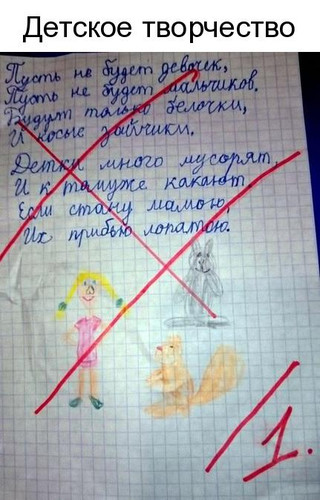 Детское творчество
Пусть не будет девочек,
Пусть не будет мальчиков.
Будут только белочки,
И косые зайчики.
Детки много мусорят,
И к тамуже какают,
Если стану мамою,
Их прибью лопатою.
1.